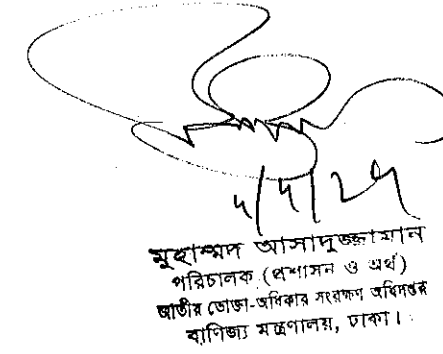 মুহাম্মদ আসাদুজ্জামান
পরিচালক (প্রশাসন ও অর্থ)
জাতীয় ভোক্তা-অধিকার সংরক্ষণ অধিদপ্তর
বাণিজ্য মন্ত্রণালয়, ঢাকা।